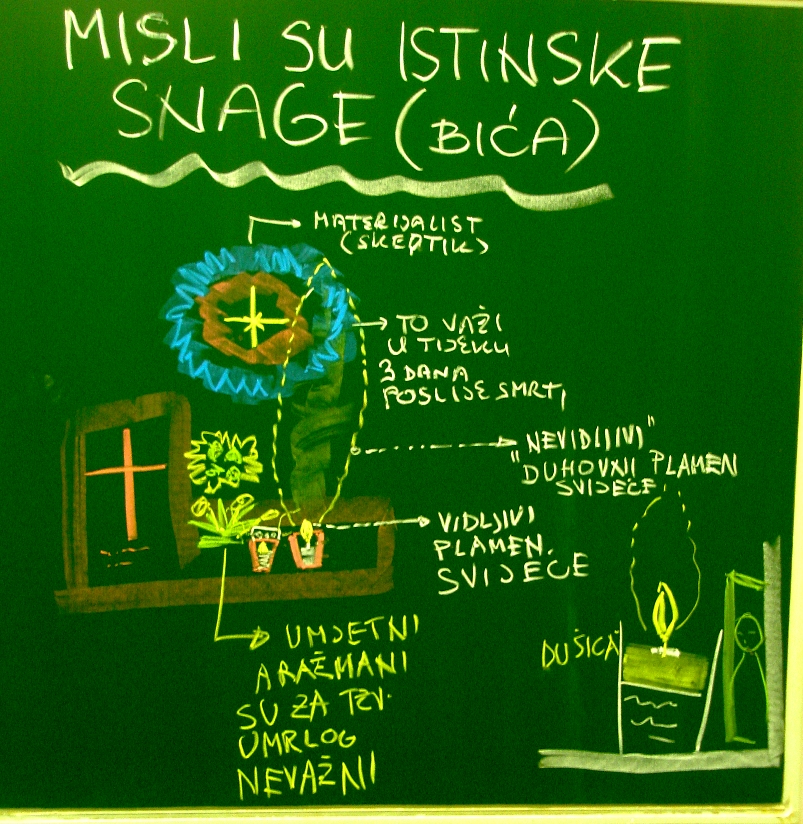 MISLI SU ISTINSKE
SNAGE (BIĆA)
MATERIJALIST
(SKEPTIK)
TO VAŽI
U TIJEKU
3 DANA
POSLIJE SMRTI
"NEVIDLJIVI"
"DUHOVNI PLAMEN
SVIJEĆE"
VIDLJIVI
PLAMEN
SVIJEĆE
DUŠICA
UMJETNI
ARAŽMANI
SU ZA TZV.
UMRLOG
NEVAŽNI